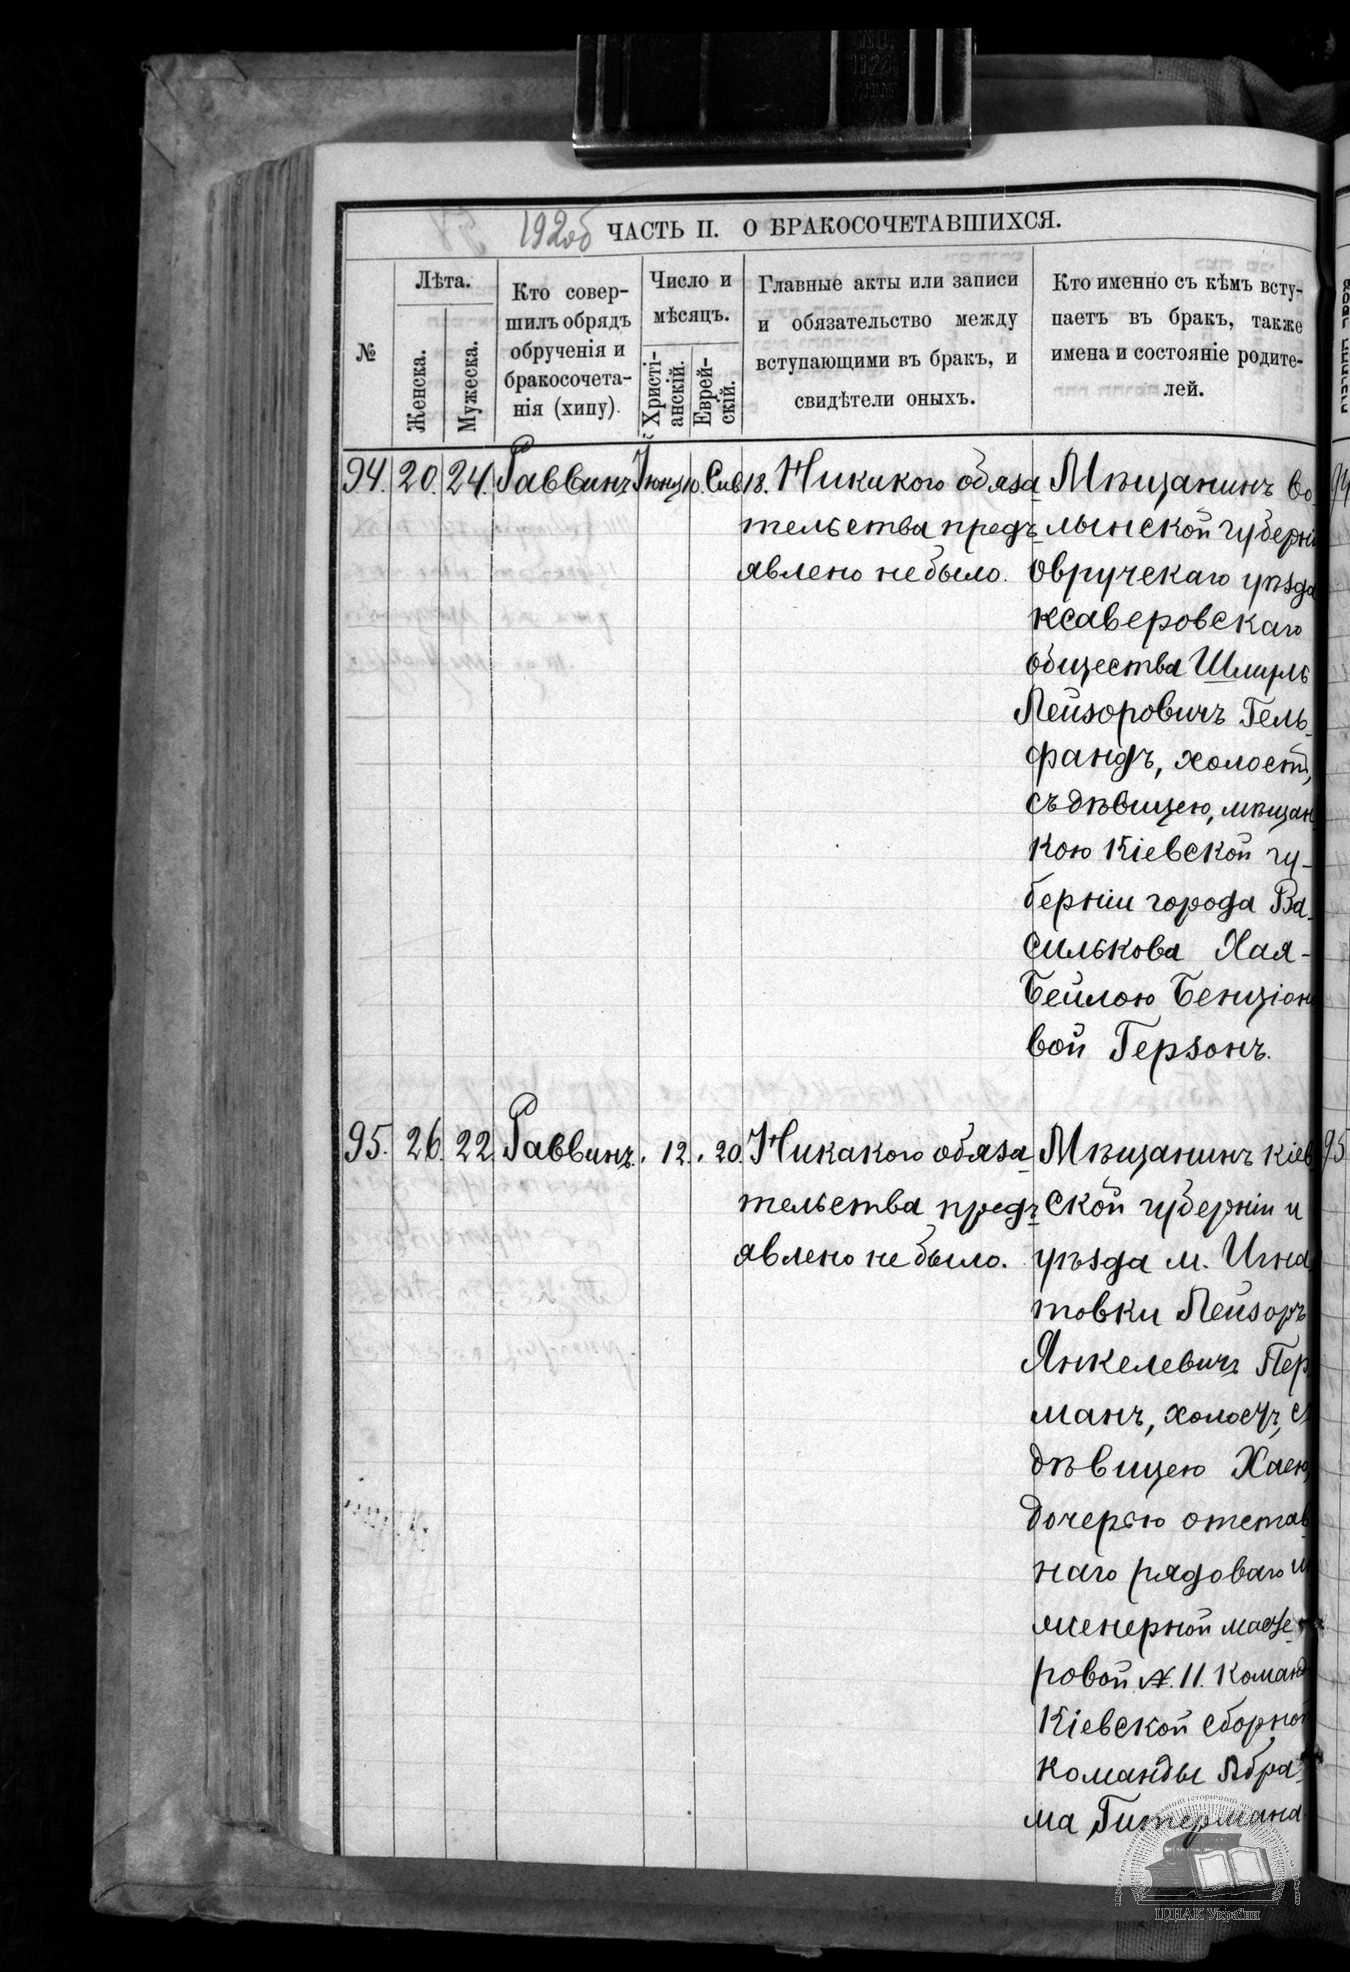 192об
ЧАСТЬ II. О БРАКОСОЧЕТАВШИХСЯ.
№
Лѣта.
Женска.
Мужеска.
Кто совер-
шилъ обрядъ
обрученія и
бракосочета-
нія (хипу).
Число и
мѣсяцъ.
Христі-
анскій.
Еврей-
скій.
Главные акты или записи
и обязательство между
вступающими въ бракъ, и
свидѣтели оныхъ.
Кто именно съ кѣмъ всту-
паетъ въ бракъ, также
имена и состояніе родите-
лей.
94. 20. 24. Раввинъ Іюня 10. Сив. 18.
Никакого обяза-
тельства предъ-
явлено не было.
Мѣщанинъ Во-
лынской губерніи
Овручскаго уѣзда
Ксаверовскаго
общества Шмуль
Лейзоровичъ Гель-
фандъ, холостъ,
съ дѣвицею, мѣщан-
кою Кіевской гу-
берніи города Ва-
силькова Хая-
Бейлою Бенціоно-
вой Герзонъ.
95. 26. 22. Раввинъ. 12. 20.
Никакого обяза-
тельства предъ-
явлено не было.
Мѣщанинъ Кіев-
ской губерніи и
уѣзда м. Игна-
товки Лейзоръ
Янкелевичъ Пер-
манъ, холостъ, съ
дѣвицею Хаею,
дочерью отстав-
наго рядоваго
женерной масте-
ровой №. 11. Команды
Кіевской сборной
команды Абра-
ма Гитермана.
ЦНАК України